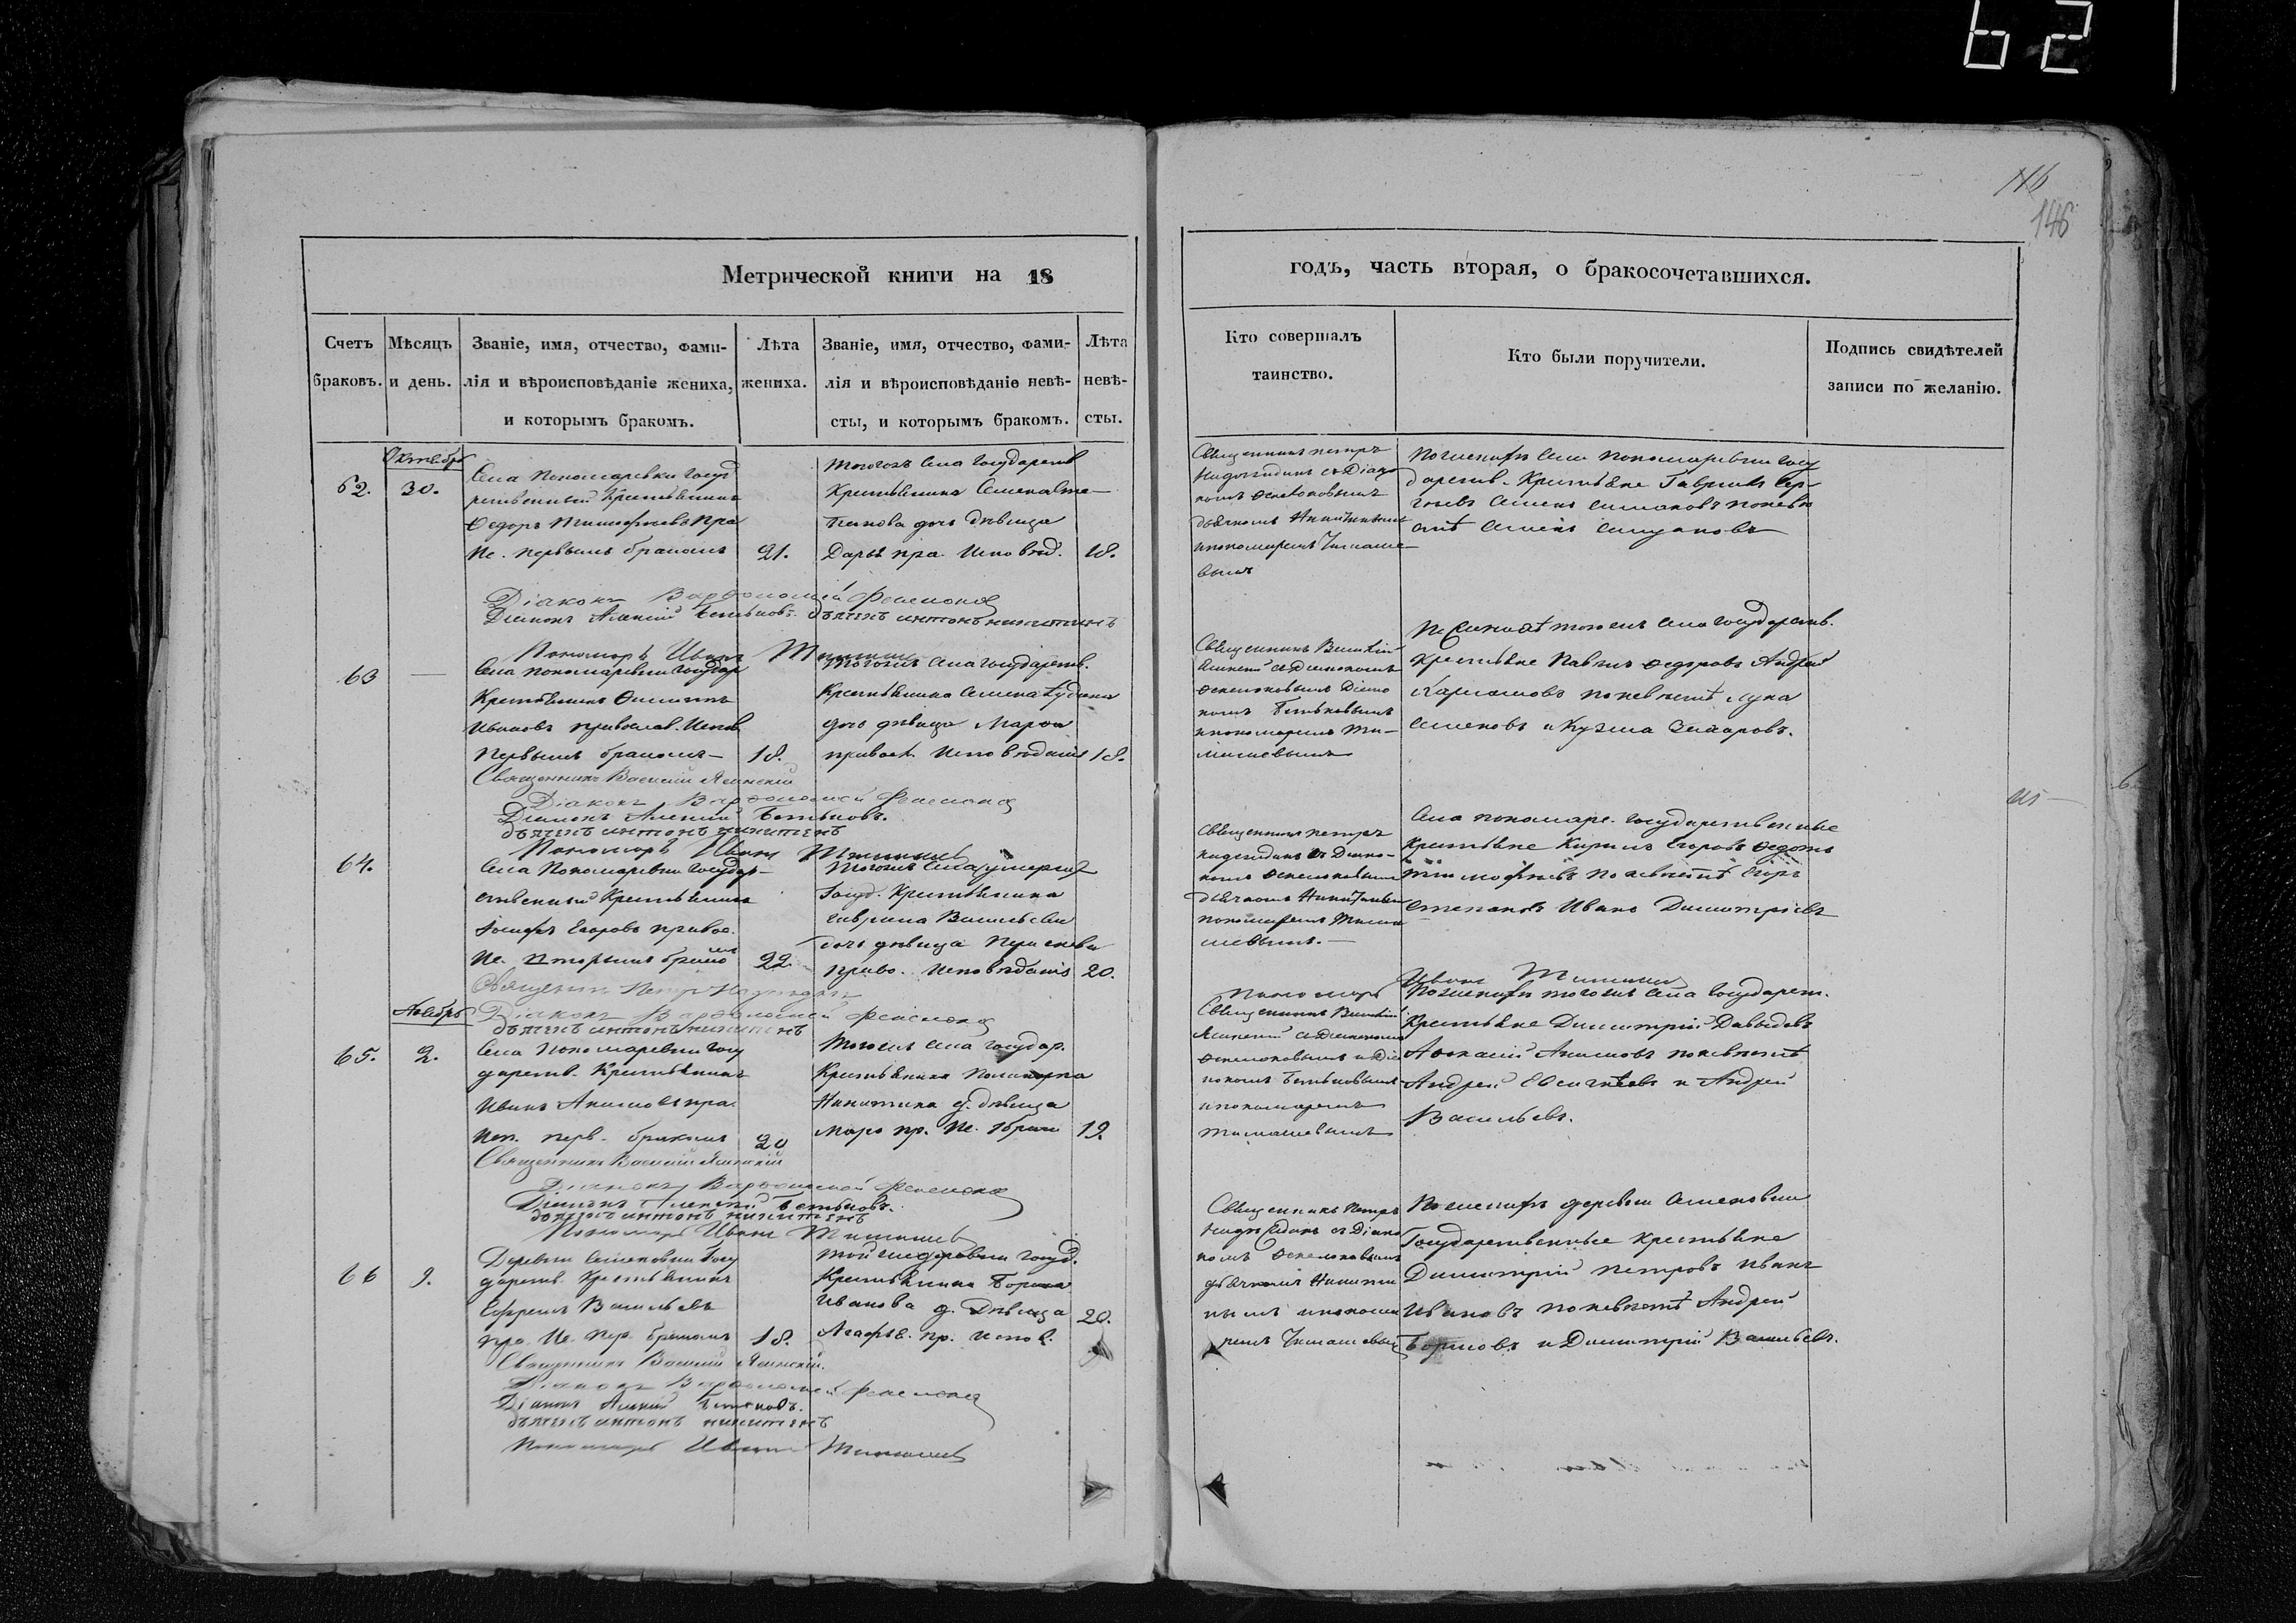 62
116
146
Метрической книги на 18
годъ, часть вторая, о бракосочетавшихся.
Счетъ браковъ.
Мѣсяцъ и день.
Званіе, имя, отчество, фами-
лія и вѣроисповѣданіе жениха,
и которымъ бракомъ.
Лѣта
жениха.
Званіе, имя, отчество, фами-
лія и вѣроисповѣданіе невѣ-
сты, и которымъ бракомъ.
Лѣта
невѣ-
сты.
Кто совершалъ
таинство.
Кто были поручители.
Подпись свидѣтелей
записи по желанію.
Октября
62.
30.
Села Пономаревки Госуд
рственный Крестьянинъ
Ѳедоръ Тимофѣевъ Пра
Ис. первымъ бракомъ
21.
Тогожъ Села Государств
Крестьянина Семена Сте-
панова дочь дѣвица
Дарья пра. Исповѣд.
18.
Священникъ Петръ
Надеждинъ съ Діако
номъ
дьячкомъ Никитинымъ
и пономаремъ Тимаше-
вымъ
По женихѣ Села Пономаревки Госу
дарств. Крестьяне Гавріилъ Сер-
гѣевъ Семенъ Симаковъ по невѣ
стѣ Семенъ
Діаконъ Варфоломей
Діаконъ Алексій дьячекъ Антонъ Никитинъ
Пономарь Иванъ Тимашевъ
63
—
Села Пономаревки Государ
Крестьянинъ Филиппъ
Ивановъ православ. Испов
первымъ бракомъ —
18.
Тогожъ Села Государств.
Крестьянина Семена
дочь дѣвица Марфа
правосл. Исповѣданія
18.
Священникъ Василій
Ясинскій съ Діакономъ
Діако
номъ
и пономаремъ Ти-
машевымъ
По Женихѣ тогожъ Села Государств.
Крестьяне Павелъ Ѳедоровъ Андрей
по невѣстѣ Лука
Семеновъ и Кузма Захаровъ.
Священникъ Василій Ясинскій
Діаконъ Варфоломей
Діаконъ Алексій
дьячекъ Антонъ Никитинъ
Пономарь Иванъ Тимашевъ
64.
Села Пономаревки Государ-
ственный Крестьянинъ
Іосифъ Егоровъ правос.
Ис. вторымъ брако
22.
Тогожъ Села умершаго
Госуд. Крестьянина
Гаврила Васильева
дочь дѣвица
право. Исповѣданія
20.
Священникъ Петръ
Надеждинъ съ Діако-
номъ
дьячкомъ Никитинымъ
пономаремъ Тима
шевымъ. —
Села Пономаре. Государственные
Крестьяне Кирилъ Егоровъ Ѳедотъ
Тимофѣевъ по невѣстѣ Егоръ
Степановъ Иванъ Димитріевъ
Священникъ Петръ Надеждинъ
Діаконъ Варфоломей
дьячекъ Антонъ Никитинъ
Пономарь Иванъ Тимашевъ
Ноябрь
65.
2.
Села Пономаревки Госу
дарств. Крестьянинъ
Иванъ Акимовъ пра.
Исп. перв. бракомъ
20
Тогожъ Села Государ.
Крестьянина Поликарпа
Никитина д. дѣвица
Марѳ пр. Ис. 1 брако
19.
Священникъ Василій
Ясинскій съ Діакономъ
и Діа
кономъ
и пономаремъ
Тимашевымъ
По женихѣ тогожъ Села Государст.
Крестьяне Димитрій Давыдовъ
Акимовъ по невѣстѣ
Андрей и Андрей
Васильевъ.
Священникъ Василій Ясинскій
Діаконъ Варфоломей
Діаконъ Алексій
дьячекъ Антонъ Никитинъ
Пономарь Иванъ Тимашевъ
66
9.
Деревни Семеновки Госу
дарств. Крестьянинъ
Ефремъ Васильевъ
пра. Ис. пер. бракомъ
18.
Той же деревни Госуд.
Крестьянина Бориса
Иванова д. Дѣвица
Агафья. пр. Испов.
20.
Священникъ Петръ
Надеждинъ съ Діако
номъ
дьячкомъ Никити
нымъ и понома
ремъ Тимашевым
По женихѣ деревни Семеновки
Государственные Крестьяне
Димитрій Петровъ Иванъ
Ивановъ по невѣстѣ Андрей
Борисовъ и Димитрій Васильевъ.
Священникъ Василій Ясинскій.
Діаконъ Варфоломей
Діаконъ Алексій
дьячекъ Антонъ Никитинъ
Пономарь Иванъ Тимашевъ